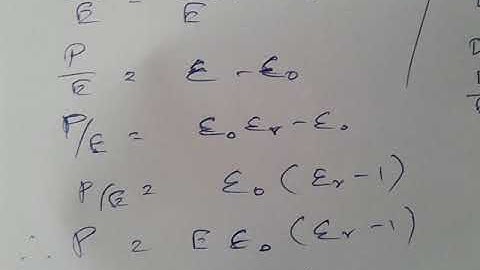 E = E
P/E = ε - ε₀
P/E = ε₀ εᵣ - ε₀
P/E = ε₀ (εᵣ - 1)
∴ P = E ε₀ (εᵣ - 1)